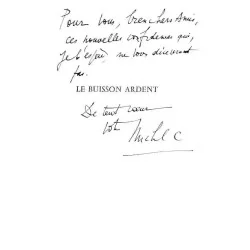 Pour vous, bien chers Amis,
ces nouvelles confidences qui,
je l'espère, ne vous
pas.
LE BUISSON ARDENT
De tout cœur
votre
Michel C